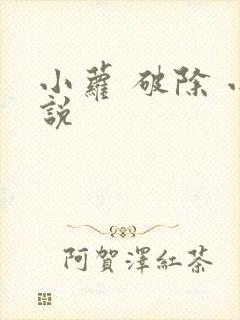 小蘿 破除 小
說
阿賀澤紅茶